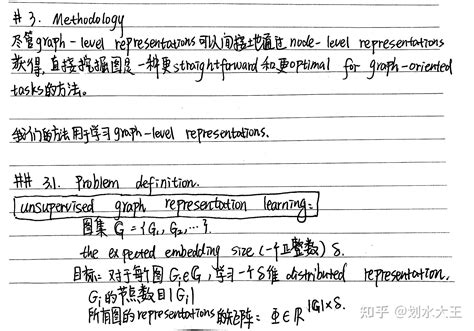 # 3. Methodology
尽管graph-level representations可以间接地通过node-level representations
获得,直接挖掘图是一种更straightforward和更optimal for graph-oriented
tasks的方法。
我们的方法用于学习graph-level representations.
## 3.1. Problem definition.
unsupervised graph representation learning:
图集 G = {G₁, G₂, ...}.
the expected embedding size (一个正整数) δ.
目标: 对于每个图 Gᵢ∈G, 学习一个δ维 distributed representation.
Gᵢ的节点数目|Gᵢ|
所有图的representations的矩阵: Φ∈R^|G|×δ.
知乎 @划水大王